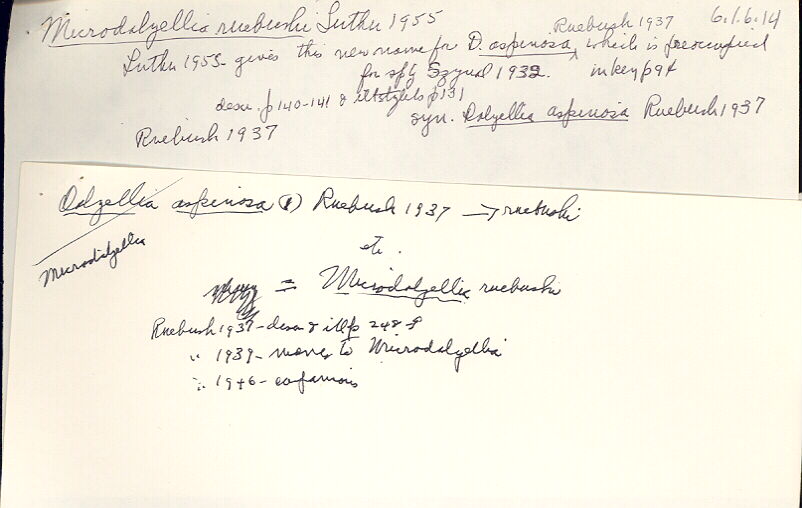 Microdalyellia ruebushi Luther 1955 6.1.6.14
Ruebush 1937
Luther 1955 - gives this new name for D. aspinosa ^ which is preoccupied
for sp by 1932. in key p 94
descr. p 140-141 & ill stylets p 131
syn. Dalyellia aspinosa Ruebush 1937
Ruebush 1937
Dalyellia aspinosa (1) Ruebush 1937 → ruebushi
Microdalyellia
etc.
= Microdalyellia ruebushi
Ruebush 1937 - descr & ill p 248 f
" 1939 - moves to Microdalyellia
" 1946 -